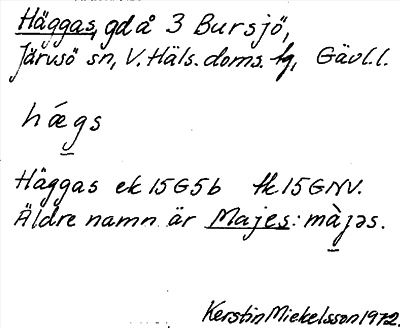 Häggas, gd å 3 Bursjö,
Järvsö sn, V. Häls. doms. tg, Gävl.l.
hǽgs
Häggas ek 15G5b tk 15GNV.
Äldre namn är Majes: màjəs.
Kerstin Mickelsson 1972.